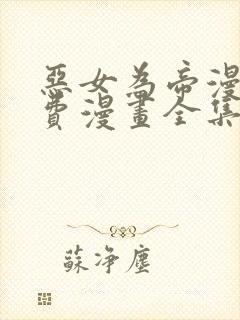 惡女為帝漫
費漫畫全集
蘇淨塵